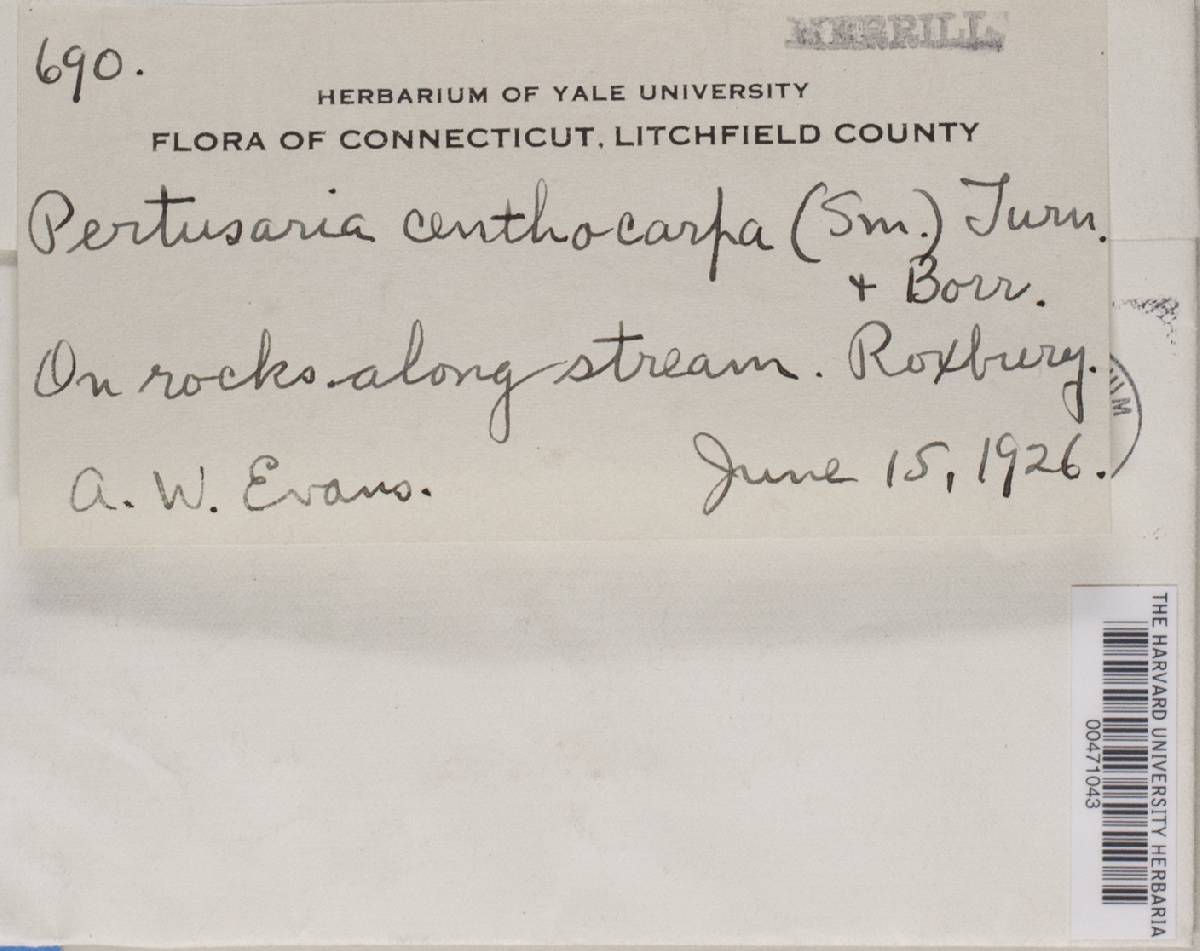 690.
MERRILL
HERBARIUM OF YALE UNIVERSITY
FLORA OF CONNECTICUT, LITCHFIELD COUNTY
Pertusaria centhocarpa (Sm.) Turn.
+ Borr.
On rocks along stream. Roxbury.
A. W. Evans.
June 15, 1926.
THE HARVARD UNIVERSITY HERBARIA
00471043